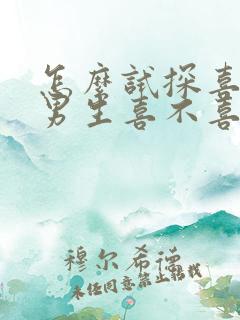 怎麼試探喜
男生喜不喜
穆尔希德
未经同意禁止转载